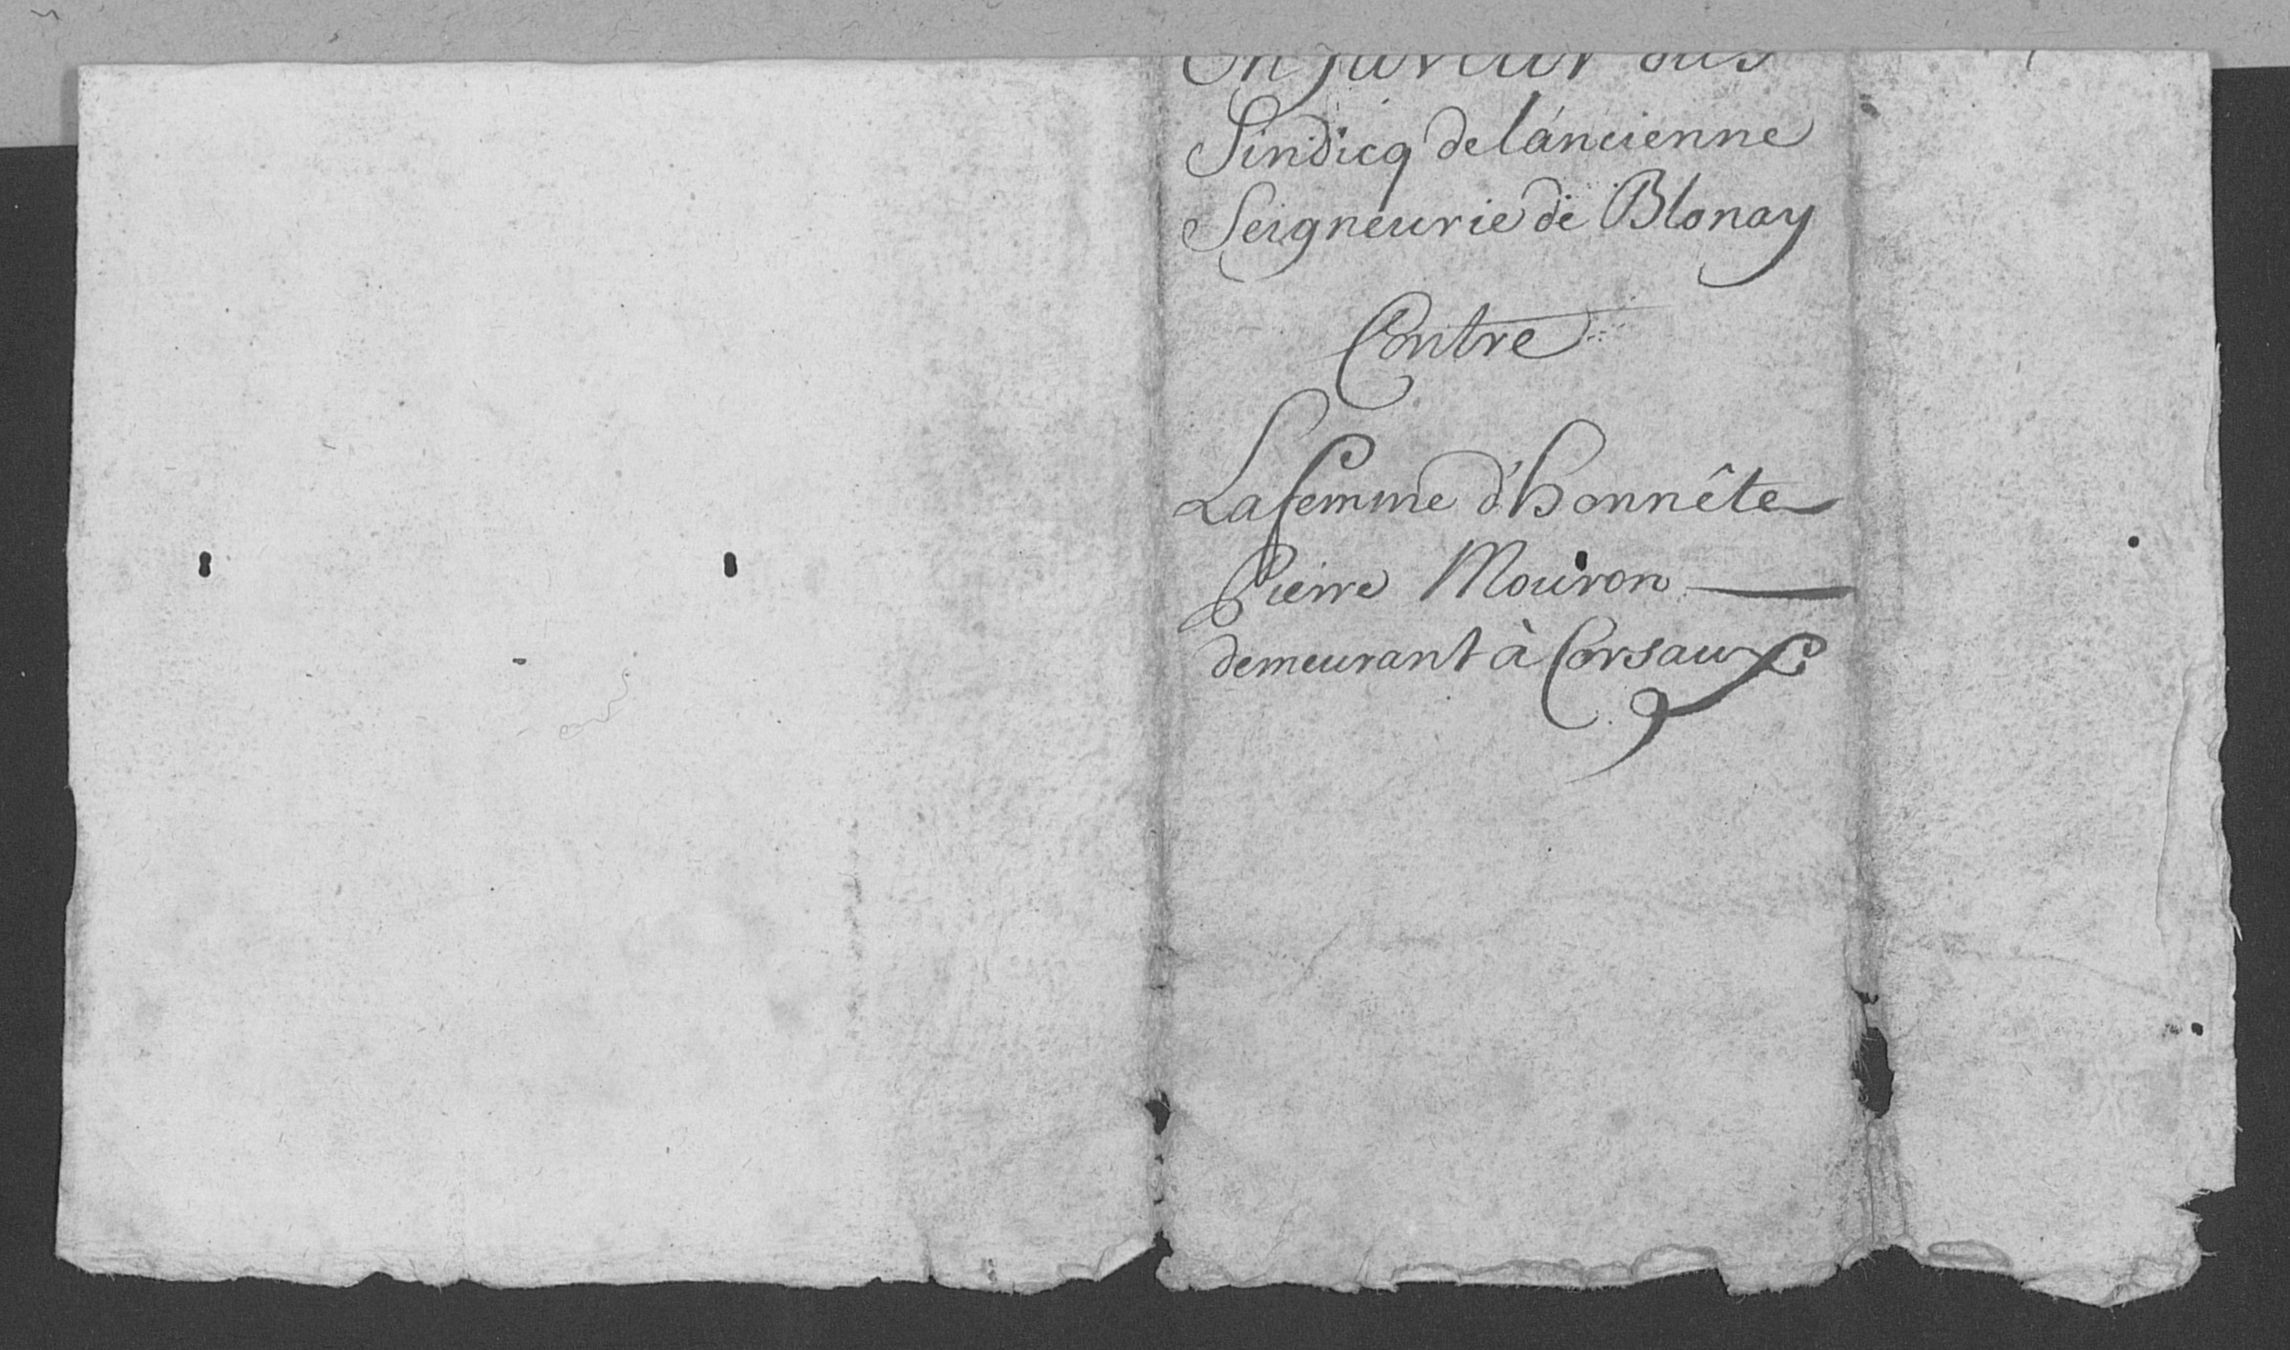 En faveur du
Sindicq de láncienne
Seigneurie de Blonay
Contre
La femme d'honnête
Pierre Mouron
demeurant à Corsaux